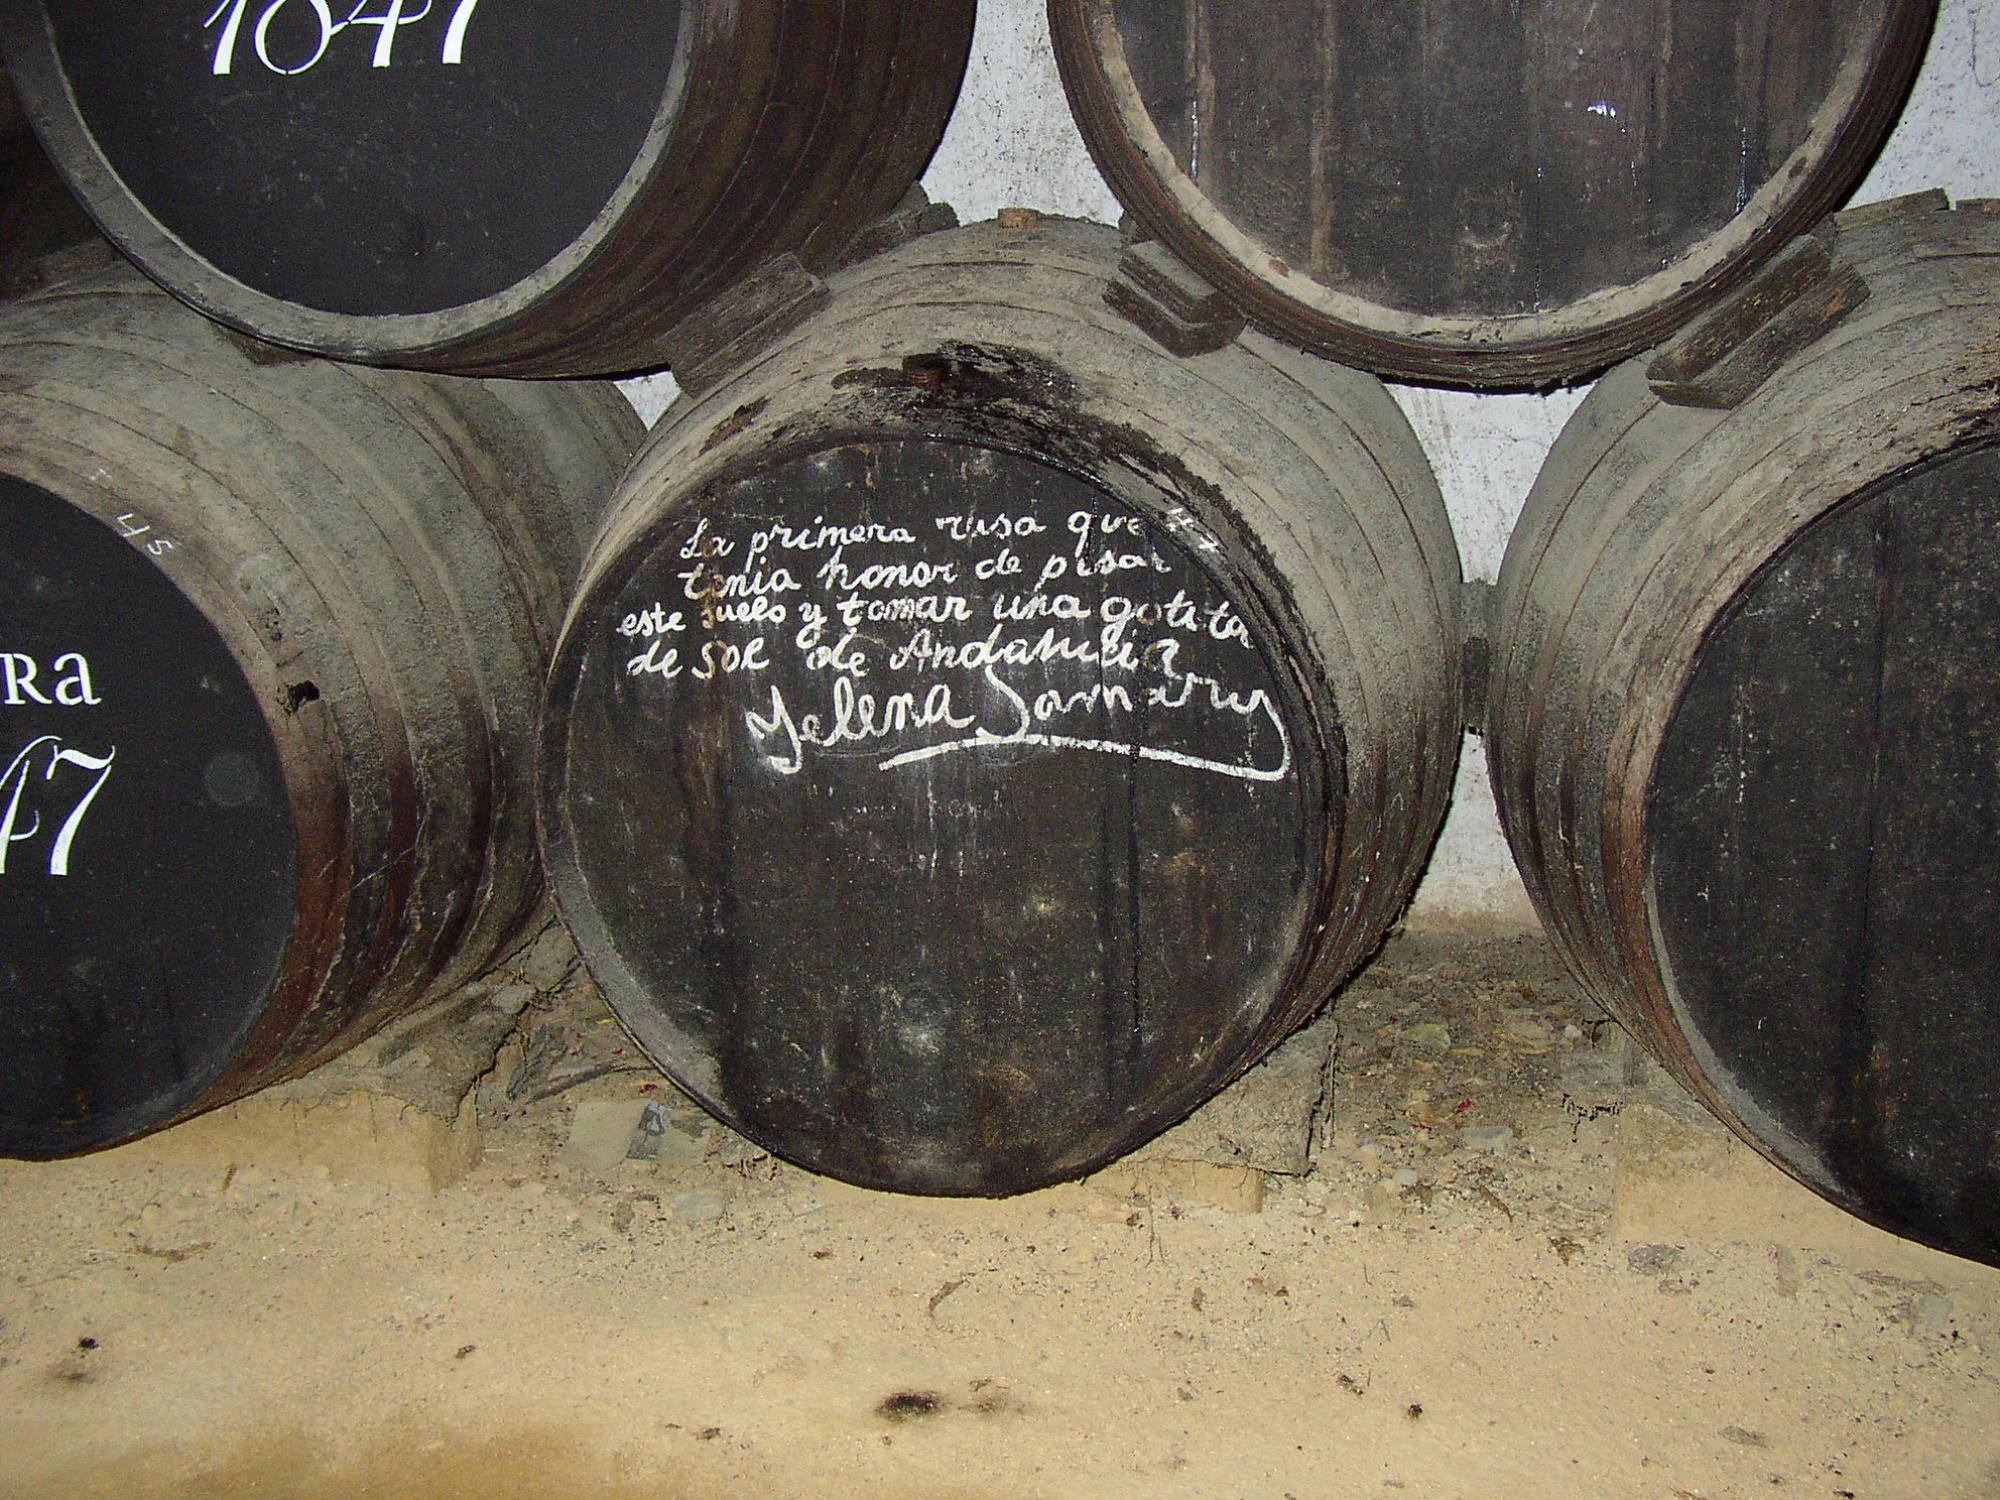 1847
45
Ra
47
La primera rusa que
tenia honor de pisar
este suelo y tomar una gotita
de sol de Andalucia
Yelena Samarry